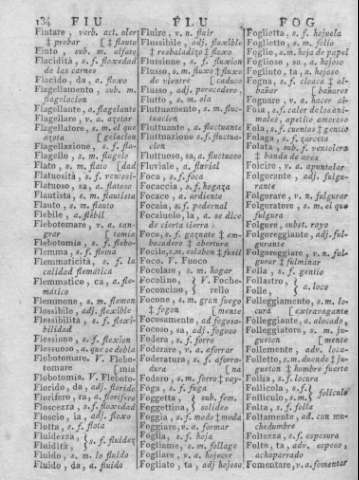 134 FIU FLU FOG
Fiutare, verb. act. oler
‡ probar [‡ flauto
Fiuto, sub. m. olfato
Flacidità, s. f. floxedad
de las carnes
Flacido, da, a. floxo
Flagellamento, sub. m.
flagelacion
Flagellante, a. flagelante
Flagellare, v. a. azotar
Flagellatore, s. m. el que
azota [gelacion
Flagellazione, s. f. fla-
Flagello, s. m. flagelo
Flato, s. m. flato [dad
Flatuosità, s. f. ventosi-
Flatuoso, sa, a. flatoso
Flautista, s. m. flautista
Flauto, s. m. flauto
Flebile, a. flébil
Flebotomare, v. a. san-
grar [tomia
Flebotomia, s. f. flebo-
Flemma, s. f. flema
Flemmaticità, s. f. la
calidad flemática
Flemmatico, ca, a. fle-
mático
Flemmone, s. m. flemon
Flessibile, adj. flexîble
Flessibilità, s. f. flexî-
bilidad
Flessione, s. f. flexîon
Flessuoso, a. que se dobla
Flobotomare. V. Flebo-
tomare [mia
Flobotomia. V. Fleboto-
Florido, da, adj. florido
Florifero, ra, a. florifero
Floscezza, s. f. floxedad
Floscio, ia, adj. floxo
Flotta, s. f. flota
Fluidezza, } s. f. fluidez
Fluidità,
Fluido, s. m. lo fluido
Fluido, da, a. fluido
Fluire, v. n. fluir
Flussibile, adj. fluxîble
‡ resbaladizo ‡ floxo
Flussione, s. f. fluxîon
Flusso, s. m. fluxo ‡ fluxo
de vientre [caduco
Flusso, adj. perecedero,
Flutto, s. m. ola
Fluttuamento, s. m. fluc-
tuacion
Fluttuante, a. fluctuante
Fluttuazione s. f. fluctua-
cion
Fluttuoso, sa, a. fluctuoso
Fluviale, a. fluvial
Foca, s. f. foca
Focaccia, s. f. hogaza
Focace, a. ardiente
Focaia, a. f. pedernal
Focaiuolo, la, a. se dice
de cierta tierra
Foce, s. f. gaznate ‡ em-
bocadero ‡ abertura
Focile, s. m. eslabon ‡ fusil
Foco. V. Fuoco
Focolare, s. m. hogar
Focolino, } V. Foche-
Foconcino, rello
Focone, s. m. gran fuego
‡ fogon [mente
Focosamente, ad fogosa-
Focoso, sa, adj. fogoso
Fodera, s. f. forro
Foderare, v. a. aforrar
Foderatura, s. f. aforra-
dura
Fodero, s. m. forro ‡ vay-
Foga, s. f. fuga [na
Foggetta, } sub. fem.
Foggettino, solideo
Foggia, s. f. modo ‡ moda
Foggiare, v. a. formar
Foglia, s. f. hoja
Fogliame, s. m. follage
Fogliare, v. n. hojecer
Fogliato, ta, adj. hojoso
Foglietta, s. f. hojuela
Foglietto, s. m. folio
Foglio, s. m. hoja de papel
Foglioso, sa, a. hojoso
Fogliuto, ta, a. hojoso
Fogna, s. f. cloaca ‡ al-
bañar [bañares
Fognare, v. a. hacer al-
Foia, s. f. calor de los ani-
males, apetito amoroso
Fola, s. f. cuentos ‡ gentío
Folaga, s. f. zarceta
Folata, sub. f.
‡ banda de aves
Folcire, v. a. apuntalar
Folgorante, adj. fulgu-
rante
Folgorare, v. n. fulgurar
Folgoratore, s. m. el que
fulgura
Folgore, subst. rayo
Folgoreggiante, adj. ful-
gurante
Folgoreggiare, v. n. ful-
gurar ‡ fulminar
Folla, s. f. gentio
Follastro, } a. loco
Folle,
Folleggiamento, s. m. lo-
cura [extravagante
Folleggiante, a. alocado,
Folleggiatore, s. m.
[mente
Follemente, adv. loca-
Folletto, s. m. duende ‡
‡ hombre fuerte
Follia, s. f. locura
Follicola, s. f. } folliculo
Follicolo, s. m.
Folta, s. f. folla
Foltamente, ad. con mu-
chedumbre
Foltezza, s. f. espesura
Folto, ta, adj. espeso,
achaparrado
Fomentare, v. a. fomentar